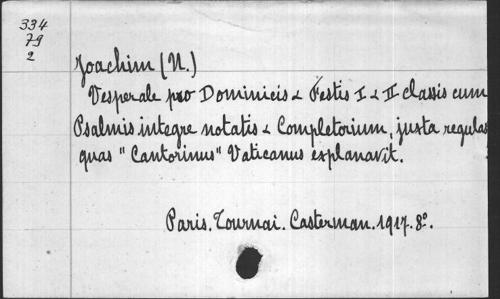 334
79
2
Joachim (N.)
Vesperale pro Dominicis & Festis I & II classis cum
Psalmis integre notatis & Completorium, juxta regulas
quas "Cantorinus" Vaticanus explanavit.
Paris. Tournai. Casterman. 1917. 8º.